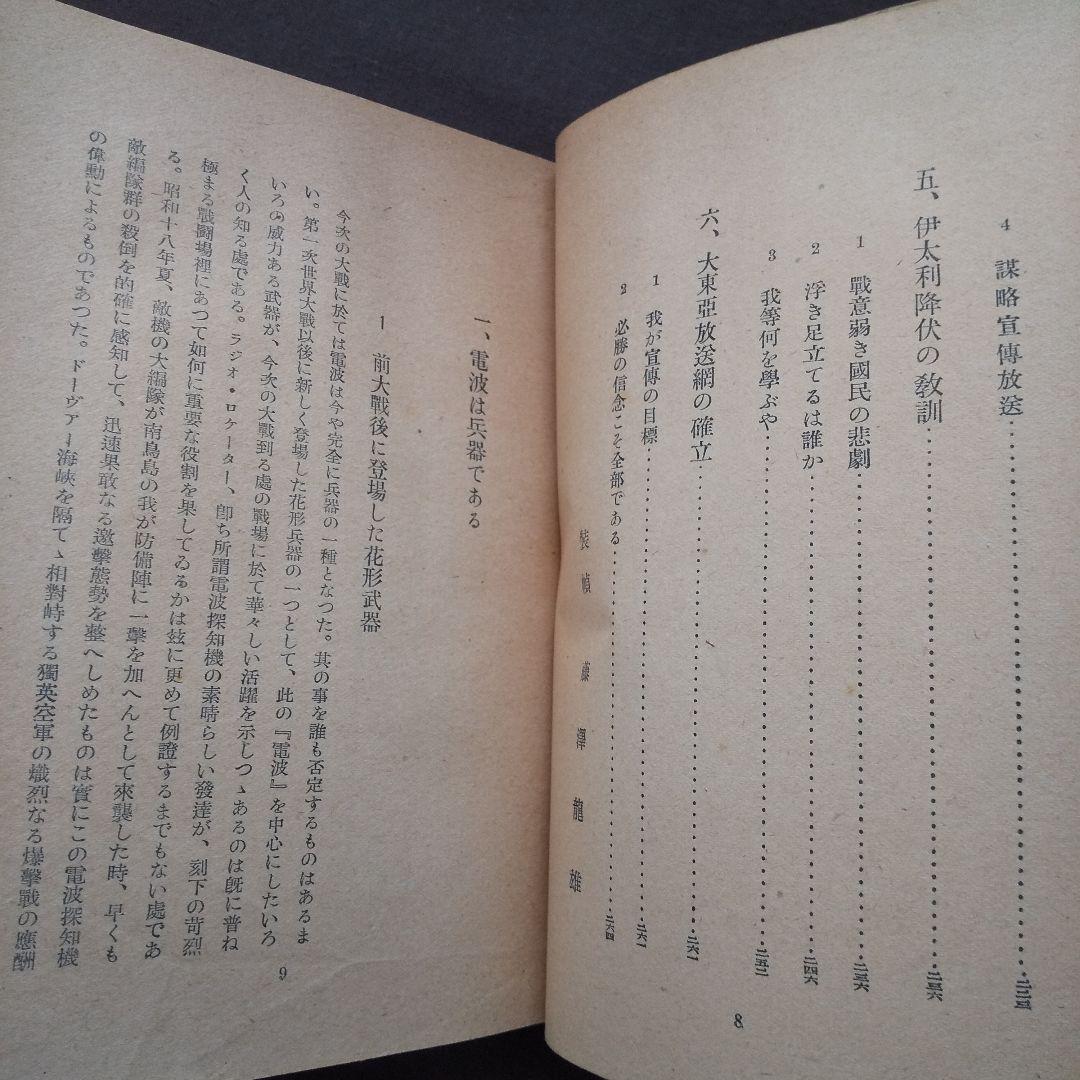 4 謀略宣傳放送
五、伊太利降伏の敎訓……二三六
1 戰意弱き國民の悲劇……二三六
2 浮き足立てるは誰か……二四六
3 我等何を學ぶや……二五二
六、大東亞放送網の確立……二六一
1 我が宣傳の目標……二六一
2 必勝の信念こそ全部である……二六四
裝幀 藤澤龍雄
8
一、電波は兵器である
1 前大戰後に登場した花形武器
今次の大戰に於ては電波は今や完全に兵器の一種となつた。其の事を誰も否定するものはあるま
い。第一次世界大戰以後に新しく登場した花形兵器の一つとして、此の『電波』を中心にしたいろ
いろの威力ある武器が、今次の大戰到る處の戰場に於て華々しい活躍を示しつゝあるのは旣に普ね
く人の知る處である。ラジオ・ロケーター、卽ち所謂電波探知機の素晴らしい發達が、刻下の苛烈
極まる戰鬪場裡にあつて如何に重要な役割を果してゐるかは玆に更めて例證するまでもない處であ
る。昭和十八年夏、敵機の大編隊が南鳥島の我が防備陣に一擊を加へんとして來襲した時、早くも
敵編隊群の殺倒を的確に感知して、迅速果敢なる邀擊態勢を整へしめたものは實にこの電波探知機
の偉勳によるものであつた。ドーヴァー海峽を隔てゝ相對峙する獨英空軍の熾烈なる爆擊戰の應酬
9